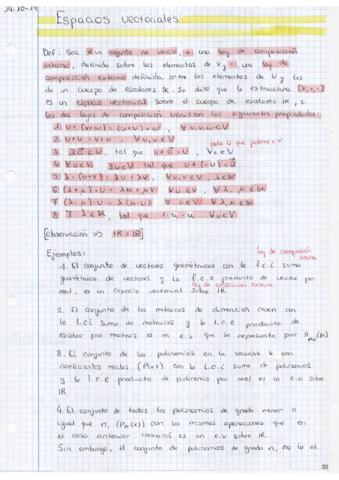 24.10.19
Espacios vectoriales
Def: Sea V un conjunto no vacío, + una ley de composición
interna, definida sobre los elementos de V y · una ley de
composición externa definida entre los elementos de V y los
de un cuerpo de escalares IK. Se dice que la estructura (V,+,·)
es un espacio vectorial sobre el cuerpo de escalares IK, si
las dos leyes de composición verifican las siguientes propiedades:
1. u+(v+w) = (u+v)+w, ∀ u,v,w ∈ V
2. u+v = v+u ∀ u,v ∈ V
3. ∃ 0 ∈ V, tal que u+0 = u, ∀u ∈ V
4. ∀u ∈ V ∃ -u ∈ V tal que u+(-u) = 0
5. λ·(u+v) = λu + λv, ∀ u,v ∈ V, λ ∈ IK
6. (λ+μ)·u = λu + μu ∀ u ∈ V, ∀ λ, μ ∈ IK
7. (λ·μ)·u = λ(μ·u) ∀ u ∈ V, ∀ λ, μ ∈ IK
8. ∃ 1 ∈ IK, tal que 1·u = u ∀u ∈ V
[Observación => IK = IR]
ley de composición
interna
Ejemplos:
1. El conjunto de vectores geométricos con la l.c.i suma
geométrica de vectores y la l.c.e producto de vector por
ley de composición externa
real, es un espacio vectorial sobre IR
2. El conjunto de las matrices de dimensión mxn con
la l.c.i suma de matrices y la l.c.e producto de
escalar por matriz es un e.v que se representa por Mmn(IK)
3. El conjunto de los polinomios en la variable x con
coeficientes reales (P(x)) con la l.c.i suma de polinomios
y la l.c.e producto de polinomio por real es un e.v. sobre
IR.
4. El conjunto de todos los polinomios de grado menor o
igual que n, (Pn(x)) con las mismas operaciones que en
el caso anterior también es un e.v sobre IR.
Sin embargo, el conjunto de polinomios de grado n, no lo es.